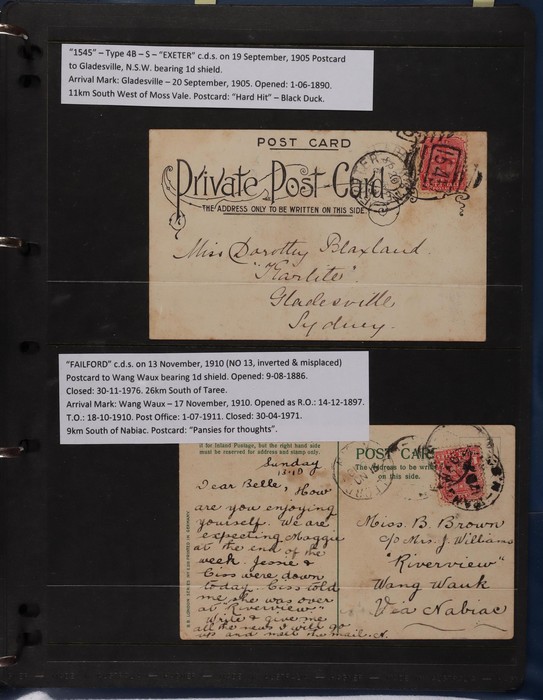 "1545" – Type 4B – S – "EXETER" c.d.s. on 19 September, 1905 Postcard
to Gladesville, N.S.W. bearing 1d shield.
Arrival Mark: Gladesville – 20 September, 1905. Opened: 1-06-1890.
11km South West of Moss Vale. Postcard: "Hard Hit" – Black Duck.
POST CARD
Private Post Card
THE ADDRESS ONLY TO BE WRITTEN ON THIS SIDE
1545
Miss Dorothy Blaxland
"Karlite"
Gladesville
Sydney.
"FAILFORD" c.d.s. on 13 November, 1910 (NO 13, inverted & misplaced)
Postcard to Wang Waux bearing 1d shield. Opened: 9-08-1886.
Closed: 30-11-1976. 26km South of Taree.
Arrival Mark: Wang Waux – 17 November, 1910. Opened as R.O.: 14-12-1897.
T.O.: 18-10-1910. Post Office: 1-07-1911. Closed: 30-04-1971.
9km South of Nabiac. Postcard: "Pansies for thoughts".
if for Inland Postage, but the right hand side
must be reserved for address and stamp only.
Sunday
Dear Belle, How
are you enjoying
yourself. We are
expecting Maggie
at the end of the
week. Jessie &
Ciss were down
today. Ciss told
me she was over
at "Riverview"
Write & give me
all the news I will go
up and meet the mail. A.
POST CARD
The Address to be writ
on this side.
Miss B. Brown
c/o Mrs. J. Williams
"Riverview"
Wang Wauk
Via Nabiac